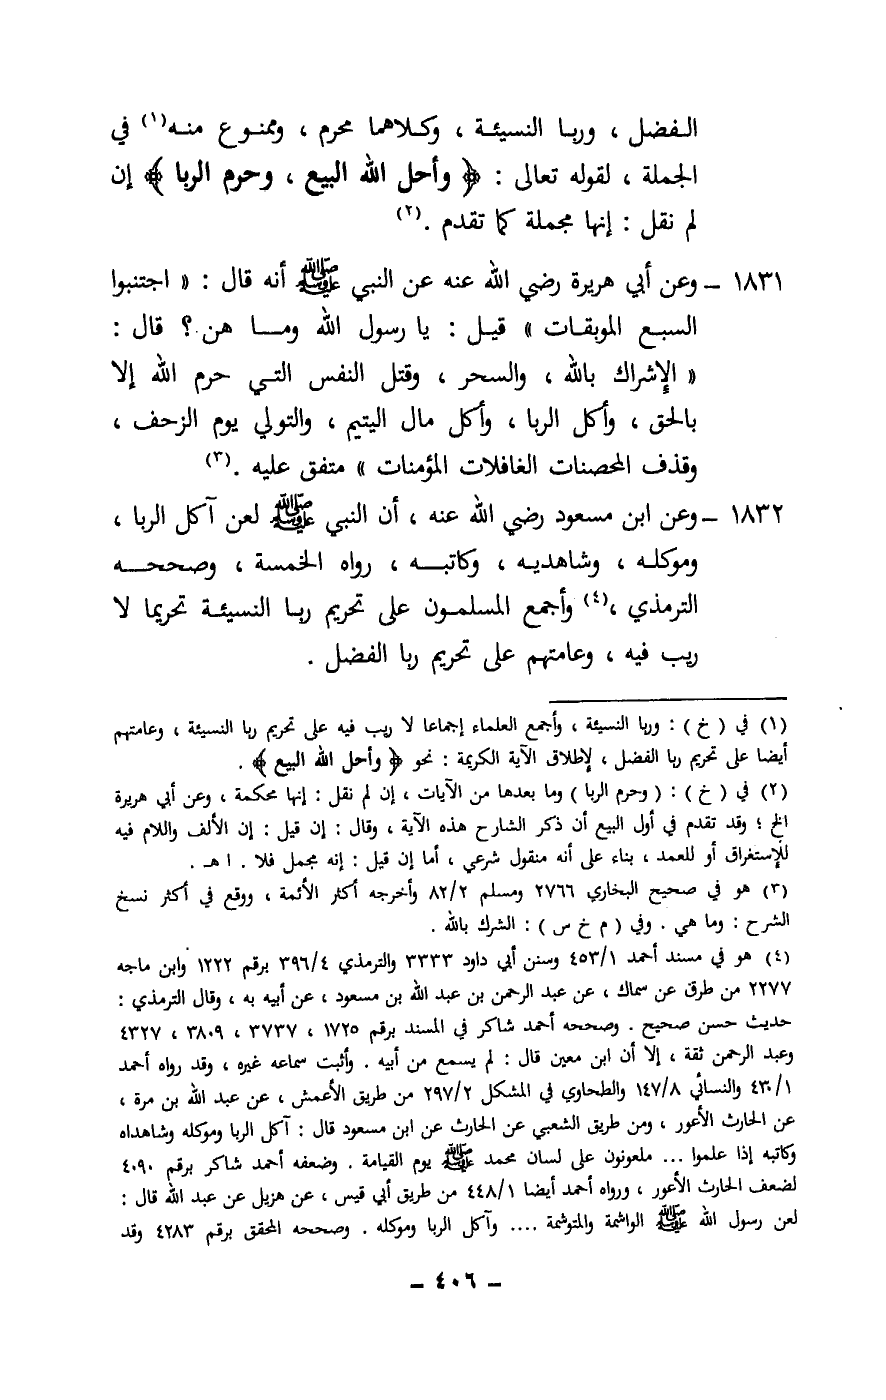 الـفضل ، وربـا النسيئـة ، وكـلاهمـا محرم ، وممنـوع منـه(١) في
الجملة ، لقوله تعالى : ﴿ وأحل الله البيع ، وحرم الربا ﴾ إن
لم نقل : إنها مجملة كما تقدم .(٢)
١٨٣١ – وعن أبي هريرة رضي الله عنه عن النبي ﷺ أنه قال : « اجتنبوا
السبـع الموبقـات » قيـل : يا رسول الله ومـــا هن ؟ قال :
« الإشراك بالله ، والسحر ، وقتل النفس التـي حرم الله إلا
بالحق ، وأكل الربا ، وأكل مال اليتيم ، والتولي يوم الزحف ،
وقذف المحصنات الغافلات المؤمنات » متفق عليه .(٣)
١٨٣٢ – وعن ابن مسعود رضي الله عنه ، أن النبي ﷺ لعن آكل الربا ،
وموكلـه ، وشاهديـه ، وكاتبــه ، رواه الخمسة ، وصححــه
الترمذي ،(٤) وأجمع المسلمـون على تحريم ربـا النسيئـة تحريما لا
ريب فيه ، وعامتهم على تحريم ربا الفضل .
(١) في ( خ ) : وربا النسيئة ، وأجمع العلماء إجماعا لا ريب فيه على تحريم ربا النسيئة ، وعامتهم
أيضا على تحريم ربا الفضل ، لإطلاق الآية الكريمة : نحو ﴿ وأحل الله البيع ﴾ .
(٢) في ( خ ) : ( وحرم الربا ) وما بعدها من الآيات ، إن لم نقل : إنها محكمة ، وعن أبي هريرة
الخ ؛ وقد تقدم في أول البيع أن ذكر الشارح هذه الآية ، وقال : إن قيل : إن الألف واللام فيه
للإستغراق أو للعمد ، بناء على أنه منقول شرعي ، أما إن قيل : إنه مجمل فلا . ا هـ .
(٣) هو في صحيح البخاري ٢٧٦٦ ومسلم ٨٢/٢ وأخرجه أكثر الأئمة ، ووقع في أكثر نسخ
الشرح : وما هي . وفي ( م خ س ) : الشرك بالله .
(٤) هو في مسند أحمد ٤٥٣/١ وسنن أبي داود ٣٣٣٣ والترمذي ٣٩٦/٤ برقم ١٢٢٢ وابن ماجه
٢٢٧٧ من طرق عن سماك ، عن عبد الرحمن بن عبد الله بن مسعود ، عن أبيه به ، وقال الترمذي :
حديث حسن صحيح . وصححه أحمد شاكر في المسند برقم ١٧٢٥ ، ٣٧٣٧ ، ٣٨٠٩ ، ٤٣٢٧
وعبد الرحمن ثقة ، إلا أن ابن معين قال : لم يسمع من أبيه . وأثبت سماعه غيره ، وقد رواه أحمد
٤٣٠/١ والنسائي ١٤٧/٨ والطحاوي في المشكل ٢٩٧/٢ من طريق الأعمش ، عن عبد الله بن مرة ،
عن الحارث الأعور ، ومن طريق الشعبي عن الحارث عن ابن مسعود قال : آكل الربا وموكله وشاهداه
وكاتبه إذا علموا ... ملعونون على لسان محمد ﷺ يوم القيامة . وضعفه أحمد شاكر برقم ٤٠٩٠
لضعف الحارث الأعور ، ورواه أحمد أيضا ٤٤٨/١ من طريق أبي قيس ، عن هزيل عن عبد الله قال :
لعن رسول الله ﷺ الواشمة والمتوشمة .... وآكل الربا وموكله . وصححه المحقق برقم ٤٢٨٣ وقد
– ٤٠٦ –